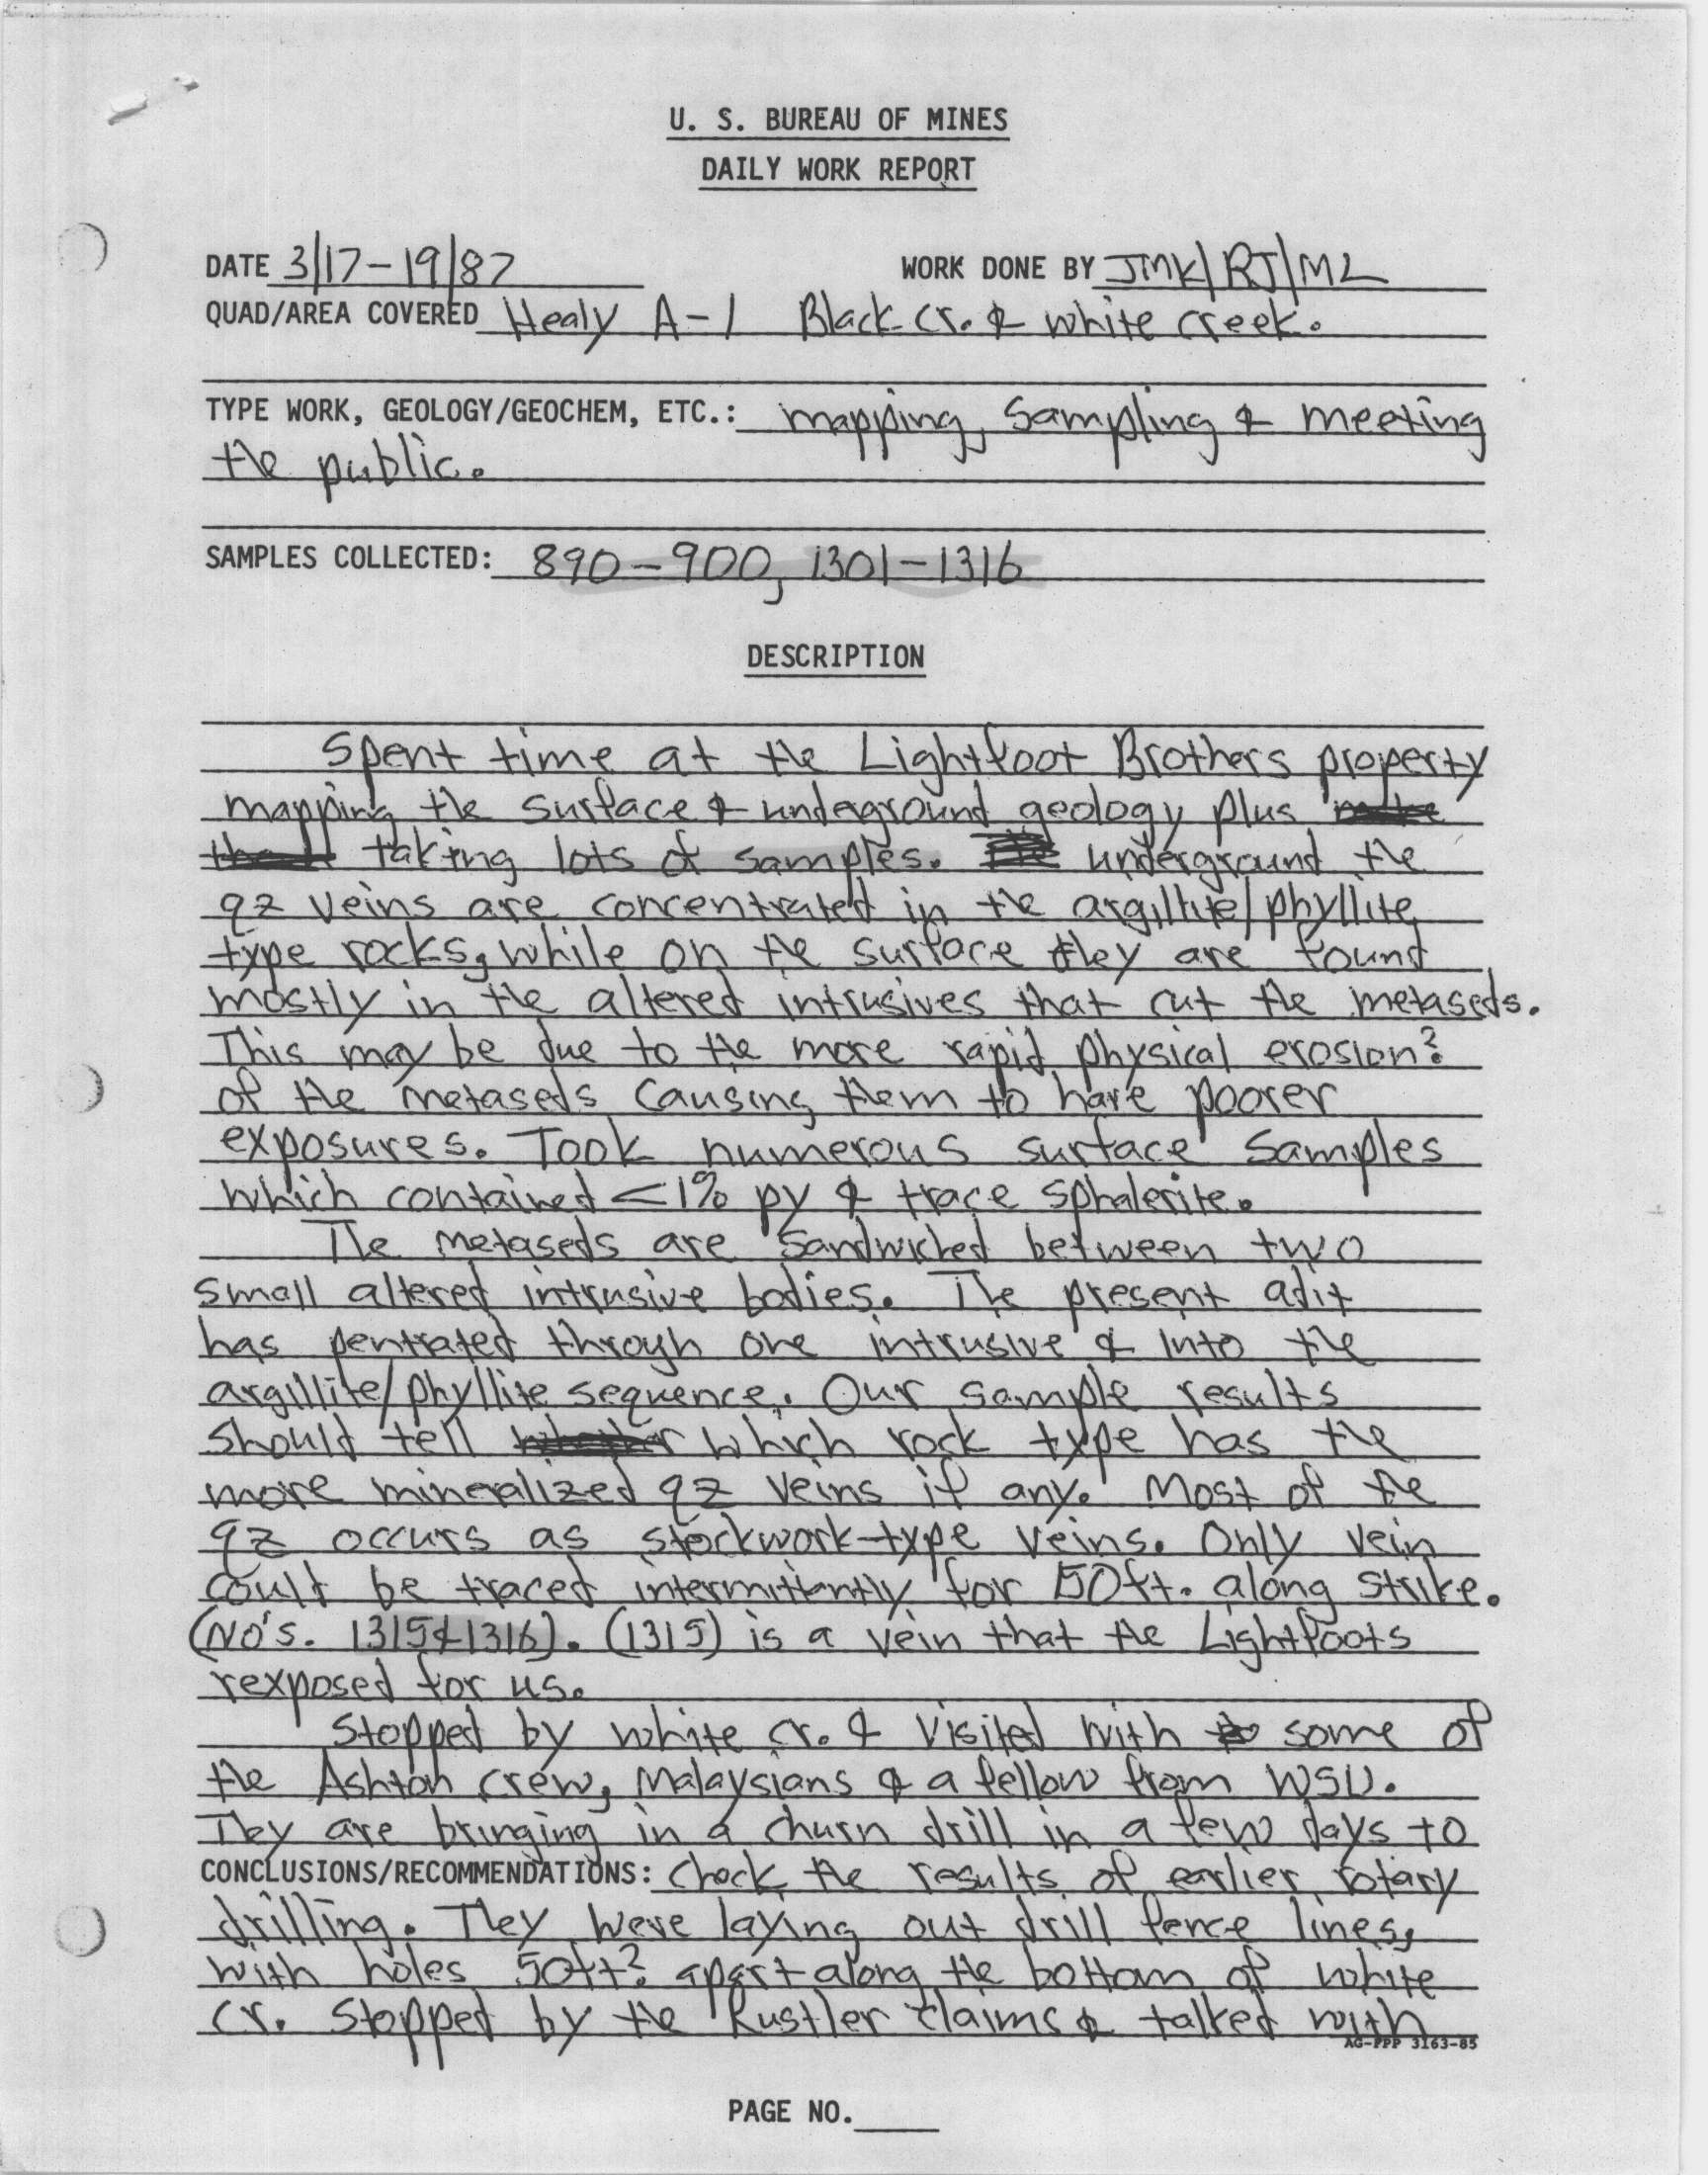 U. S. BUREAU OF MINES
DAILY WORK REPORT
DATE 3/17-19/87 WORK DONE BY JMK/RJ/ML
QUAD/AREA COVERED Healy A-1 Black cr. & white creek.
TYPE WORK, GEOLOGY/GEOCHEM, ETC.: mapping, sampling & meeting
the public.
SAMPLES COLLECTED: 890-900, 1301-1316
DESCRIPTION
Spent time at the Lightfoot Brothers property
mapping the surface & undeground geology plus
taking lots of samples. underground the
qz veins are concentrated in the argillite/phyllite
type rocks, while on the surface they are found
mostly in the altered intrusives that cut the metaseds.
This may be due to the more rapid physical erosion?
of the metaseds causing them to have poorer
exposures. Took numerous surface samples
which contained <1% py & trace sphalerite.
The metaseds are sandwiched between two
small altered intrusive bodies. The present adit
has pentrated through one intrusive & into the
argillite/phyllite sequence. Our sample results
should tell which rock type has the
more mineralized qz veins if any. Most of the
qz occurs as stockwork-type veins. Only vein
could be traced intermittantly for 50ft. along strike.
(No's. 1315&1316). (1315) is a vein that the Lightfoots
rexposed for us.
Stopped by white cr. & visited with some of
the Ashton crew, Malaysians & a fellow from WSU.
They are bringing in a churn drill in a few days to
CONCLUSIONS/RECOMMENDATIONS: check the results of earlier rotary
drilling. They were laying out drill fence lines,
with holes 50ft? apart along the bottom of white
cr. Stopped by the Rustler claims & talked with
AG-FPP 3163-85
PAGE NO.